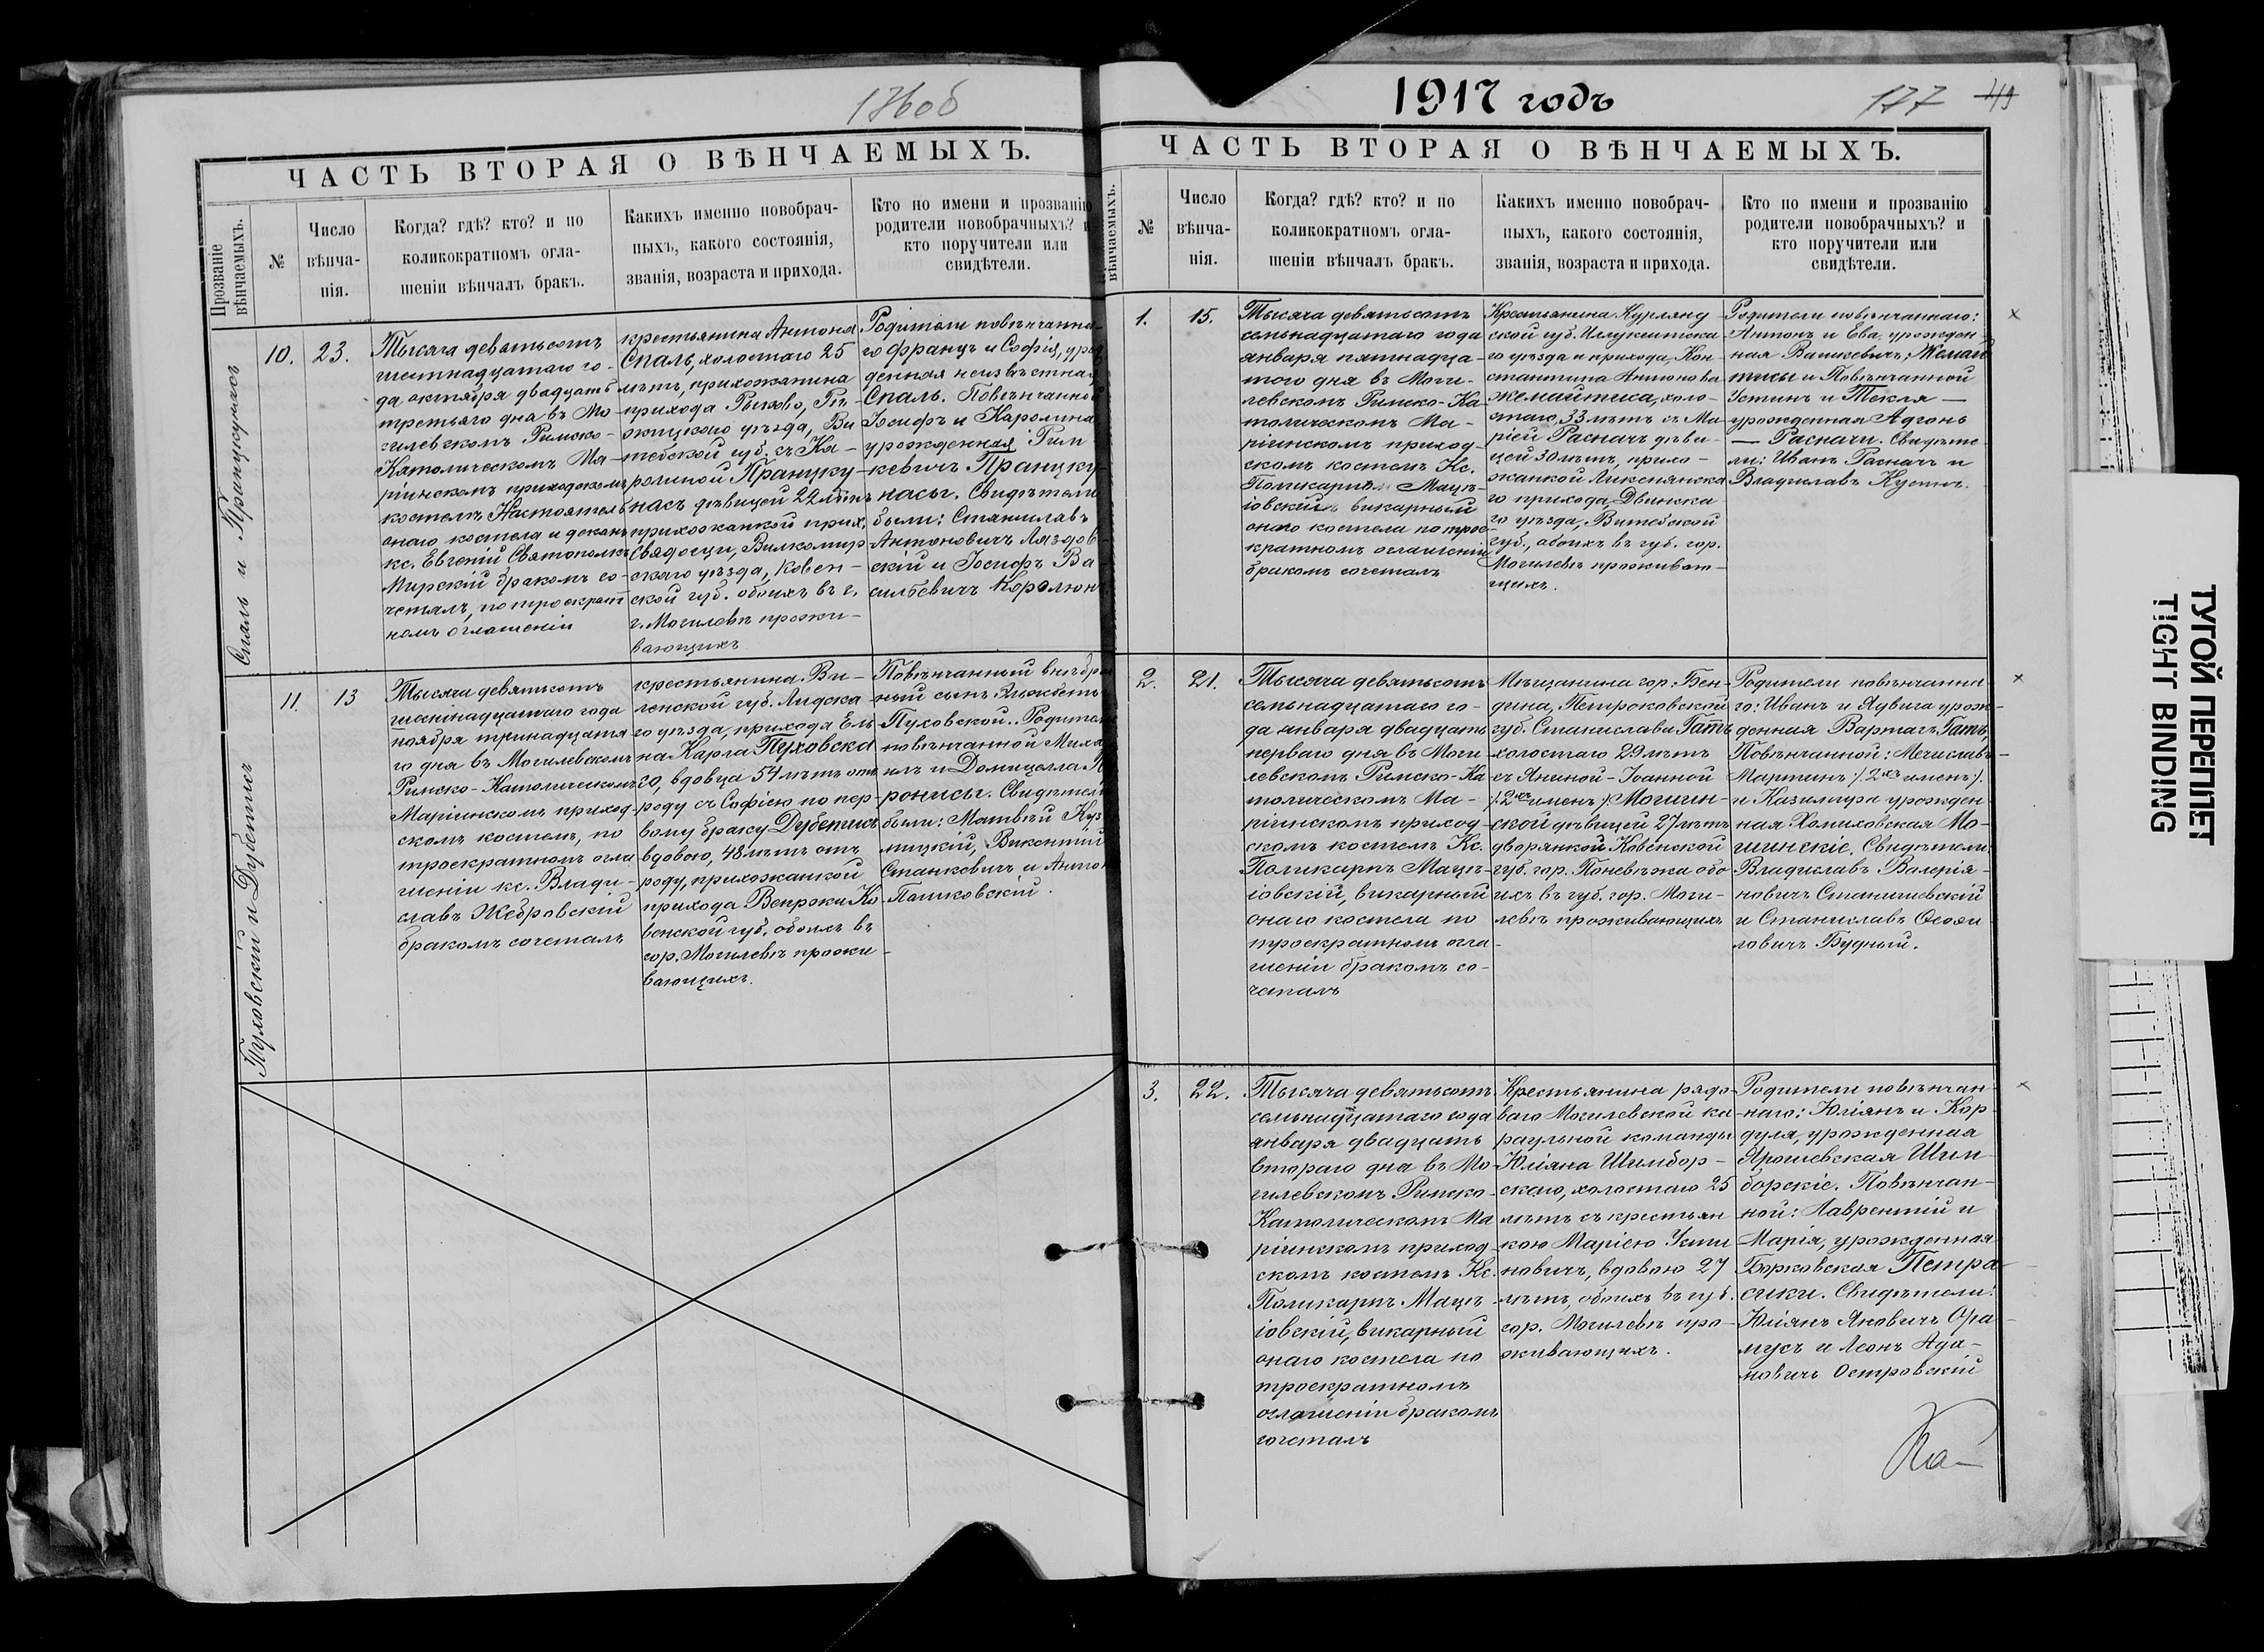 176об
ЧАСТЬ ВТОРАЯ О ВѢНЧАЕМЫХЪ.
Прозваніе
вѣнчаемыхъ.
№
Число
вѣнча-
нія.
Когда? гдѣ? кто? и по
коликократномъ огла-
шеніи вѣнчалъ бракъ.
Какихъ именно новобрач-
ныхъ, какого состоянія,
званія, возраста и прихода.
Кто по имени и прозванію
родители новобрачныхъ? и
кто поручители или
свидѣтели.
Спаль и Пранцкунасъ
10.
23.
Тысяча девятьсотъ
шестнадцатаго го-
да октября двадцать
третьяго дня въ Мо-
гилевскомъ Римско-
Католическомъ Ма-
ріинскомъ приходскомъ
костелѣ Настоятель
онаго костела и деканъ
кс. Евгеній Святополкъ
Мирскій бракомъ со-
четалъ, по троекрат-
номъ оглашеніи
крестьянина Антона
Спаль, холостаго 25
лѣтъ, прихожанина
прихода Рыково, Рѣ-
жицкаго уѣзда, Ви
тебской губ. съ Ка-
ролиной Пранцку-
насъ дѣвицей 22 лѣтъ
прихожанкой прих.
Свядосци, Вилкомир
скаго уѣзда, Ковен-
ской губ. обоихъ въ г.
г. Могилевѣ прожи-
вающихъ
Родители повѣнчанна-
го Францъ и Софія, урож
денная неизвѣстная,
Спаль. Повѣнчанной
Іосифъ и Каролина
урожденная Гри
кевичъ Пранцку-
насы. Свидѣтели
были: Станиславъ
Антоновичъ Ляздов-
скій и Іосифъ Ва
сильевичъ Королюн
Пуховскій и Дубетисъ
11.
13
Тысяча девятьсотъ
шестнадцатаго года
ноября тринадцата
го дня въ Могилевскомъ
Римско-Католическомъ
Маріинскомъ приход-
скомъ костелѣ, по
троекратномъ огла
шеніи кс. Влади-
славъ Жебровскій
бракомъ сочеталъ
крестьянина Ви-
ленской губ. Лидска
го уѣзда, прихода Ель
на Карла Пуховска
го, вдовца 54 лѣтъ отъ
роду съ Софіею по пер-
вому браку Дубетисъ
вдовою, 48 лѣтъ отъ
роду, прихожанкой
прихода Вепржи Ко
венской губ. обоихъ въ
гор. Могилевѣ прожи-
вающихъ.
Повѣнчанный внѣбра
ный сынъ Эльжбеты
Пуховской.. Родители
повѣнчанной Миха
илъ и Домицелла
ронисы. Свидѣтели
были: Матвѣй Куз
мицкій, Викентій
Станкевичъ и Антон
Пашковскій.
1917 годъ
177
49
ЧАСТЬ ВТОРАЯ О ВѢНЧАЕМЫХЪ.
вѣнчаемыхъ.
№
Число
вѣнча-
нія.
Когда? гдѣ? кто? и по
коликократномъ огла-
шеніи вѣнчалъ бракъ.
Какихъ именно новобрач-
ныхъ, какого состоянія,
званія, возраста и прихода.
Кто по имени и прозванію
родители новобрачныхъ? и
кто поручители или
свидѣтели.
1.
15.
Тысяча девятьсотъ
семьнадцатаго года
января пятнадца-
того дня въ Моги-
левскомъ Римско-Ка-
толическомъ Ма-
ріинскомъ приход-
скомъ костелѣ Кс.
Поликарпъ Мацѣ-
іовскій викарный
онаго костела по трое-
кратномъ оглашеніи
бракомъ сочеталъ
Крестьянина Курлянд
ской губ. Иллукстска
го уѣзда и прихода, Кон-
стантина Антонова
Жемайтиса, холо-
стаго, 33 лѣтъ съ Ма
ріей Распачъ дѣви-
цей 30 лѣтъ, прихо-
жанкой Ликснянска
го прихода, Двинска
го уѣзда, Витебской
губ., обоихъ въ губ. гор.
Могилевѣ проживаю-
щихъ.
Родители повѣнчаннаго:
Антонъ и Ева, урожден-
ная Вашкевичъ, Жемай
тисы и Повѣнчанной
Устинъ и Текля —
урожденная Адгонь
— Распачи. Свидѣте
ли: Иванъ Распачъ и
Владиславъ Кустъ.
х
2.
21.
Тысяча девятьсотъ
семьнадцатаго го-
да января двадцать
перваго дня въ Моги
левскомъ Римско-Ка
толическомъ Ма-
ріинскомъ приход-
скомъ костелѣ Кс.
Поликарпъ Мацѣ-
іовскій, викарный
онаго костела по
троекратномъ огла-
шеніи бракомъ со-
четалъ
Мѣщанина гор. Бен-
дина, Петроковской
губ. Станислава Гатъ
холостаго 29 лѣтъ
съ Яниной-Іоанной
/2хъ именъ/ Мошин-
ской дѣвицей 27 лѣтъ
дворянкой Ковенской
губ. гор. Поневѣжа обо
ихъ въ губ. гор. Моги-
левѣ проживающихъ
Родители повѣнчанна-
го: Иванъ и Ядвига урож-
денная Вартачъ Гатъ,
Повѣнчанной: Мечиславъ-
Мартинъ /2хъ именъ/.
и Казимира урожден-
ная Хомиховская Мо-
шинскіе. Свидѣтели:
Владиславъ Валерія-
новичъ Станишевскій
и Станиславъ Феофи
ловичъ Будный.
х
3.
22.
Тысяча девятьсотъ
семьнадцатаго года
января двадцать
втораго дня въ Мо
гилевскомъ Римско-
Католическомъ Ма
ріинскомъ приход
скомъ костелѣ Кс.
Поликарпъ Мацѣ
іовскій, викарный
онаго костела по
троекратномъ
оглашеніи бракомъ
сочеталъ
Крестьянина рядо-
ваго Могилевской ка
раульной команды
Юліяна Шимбор-
скаго, холостаго 25
лѣтъ съ крестьян
кою Маріею Усти
новичъ, вдовою 27
лѣтъ, обоихъ въ губ.
гор. Могилевѣ про-
живающихъ.
Родители повѣнчан-
наго: Юліянъ и Кор
дуля, урожденная
Ярошевская Шим
борскіе. Повѣнчан-
ной: Лаврентій и
Марія, урожденная
Борковская Петра-
сики. Свидѣтели:
Юліянъ Яновичъ Ора
мусъ и Леонъ Ада-
мовичъ Островскій
х
Ка
ТУГОЙ ПЕРЕПЛЕТ
TIGHT BINDING